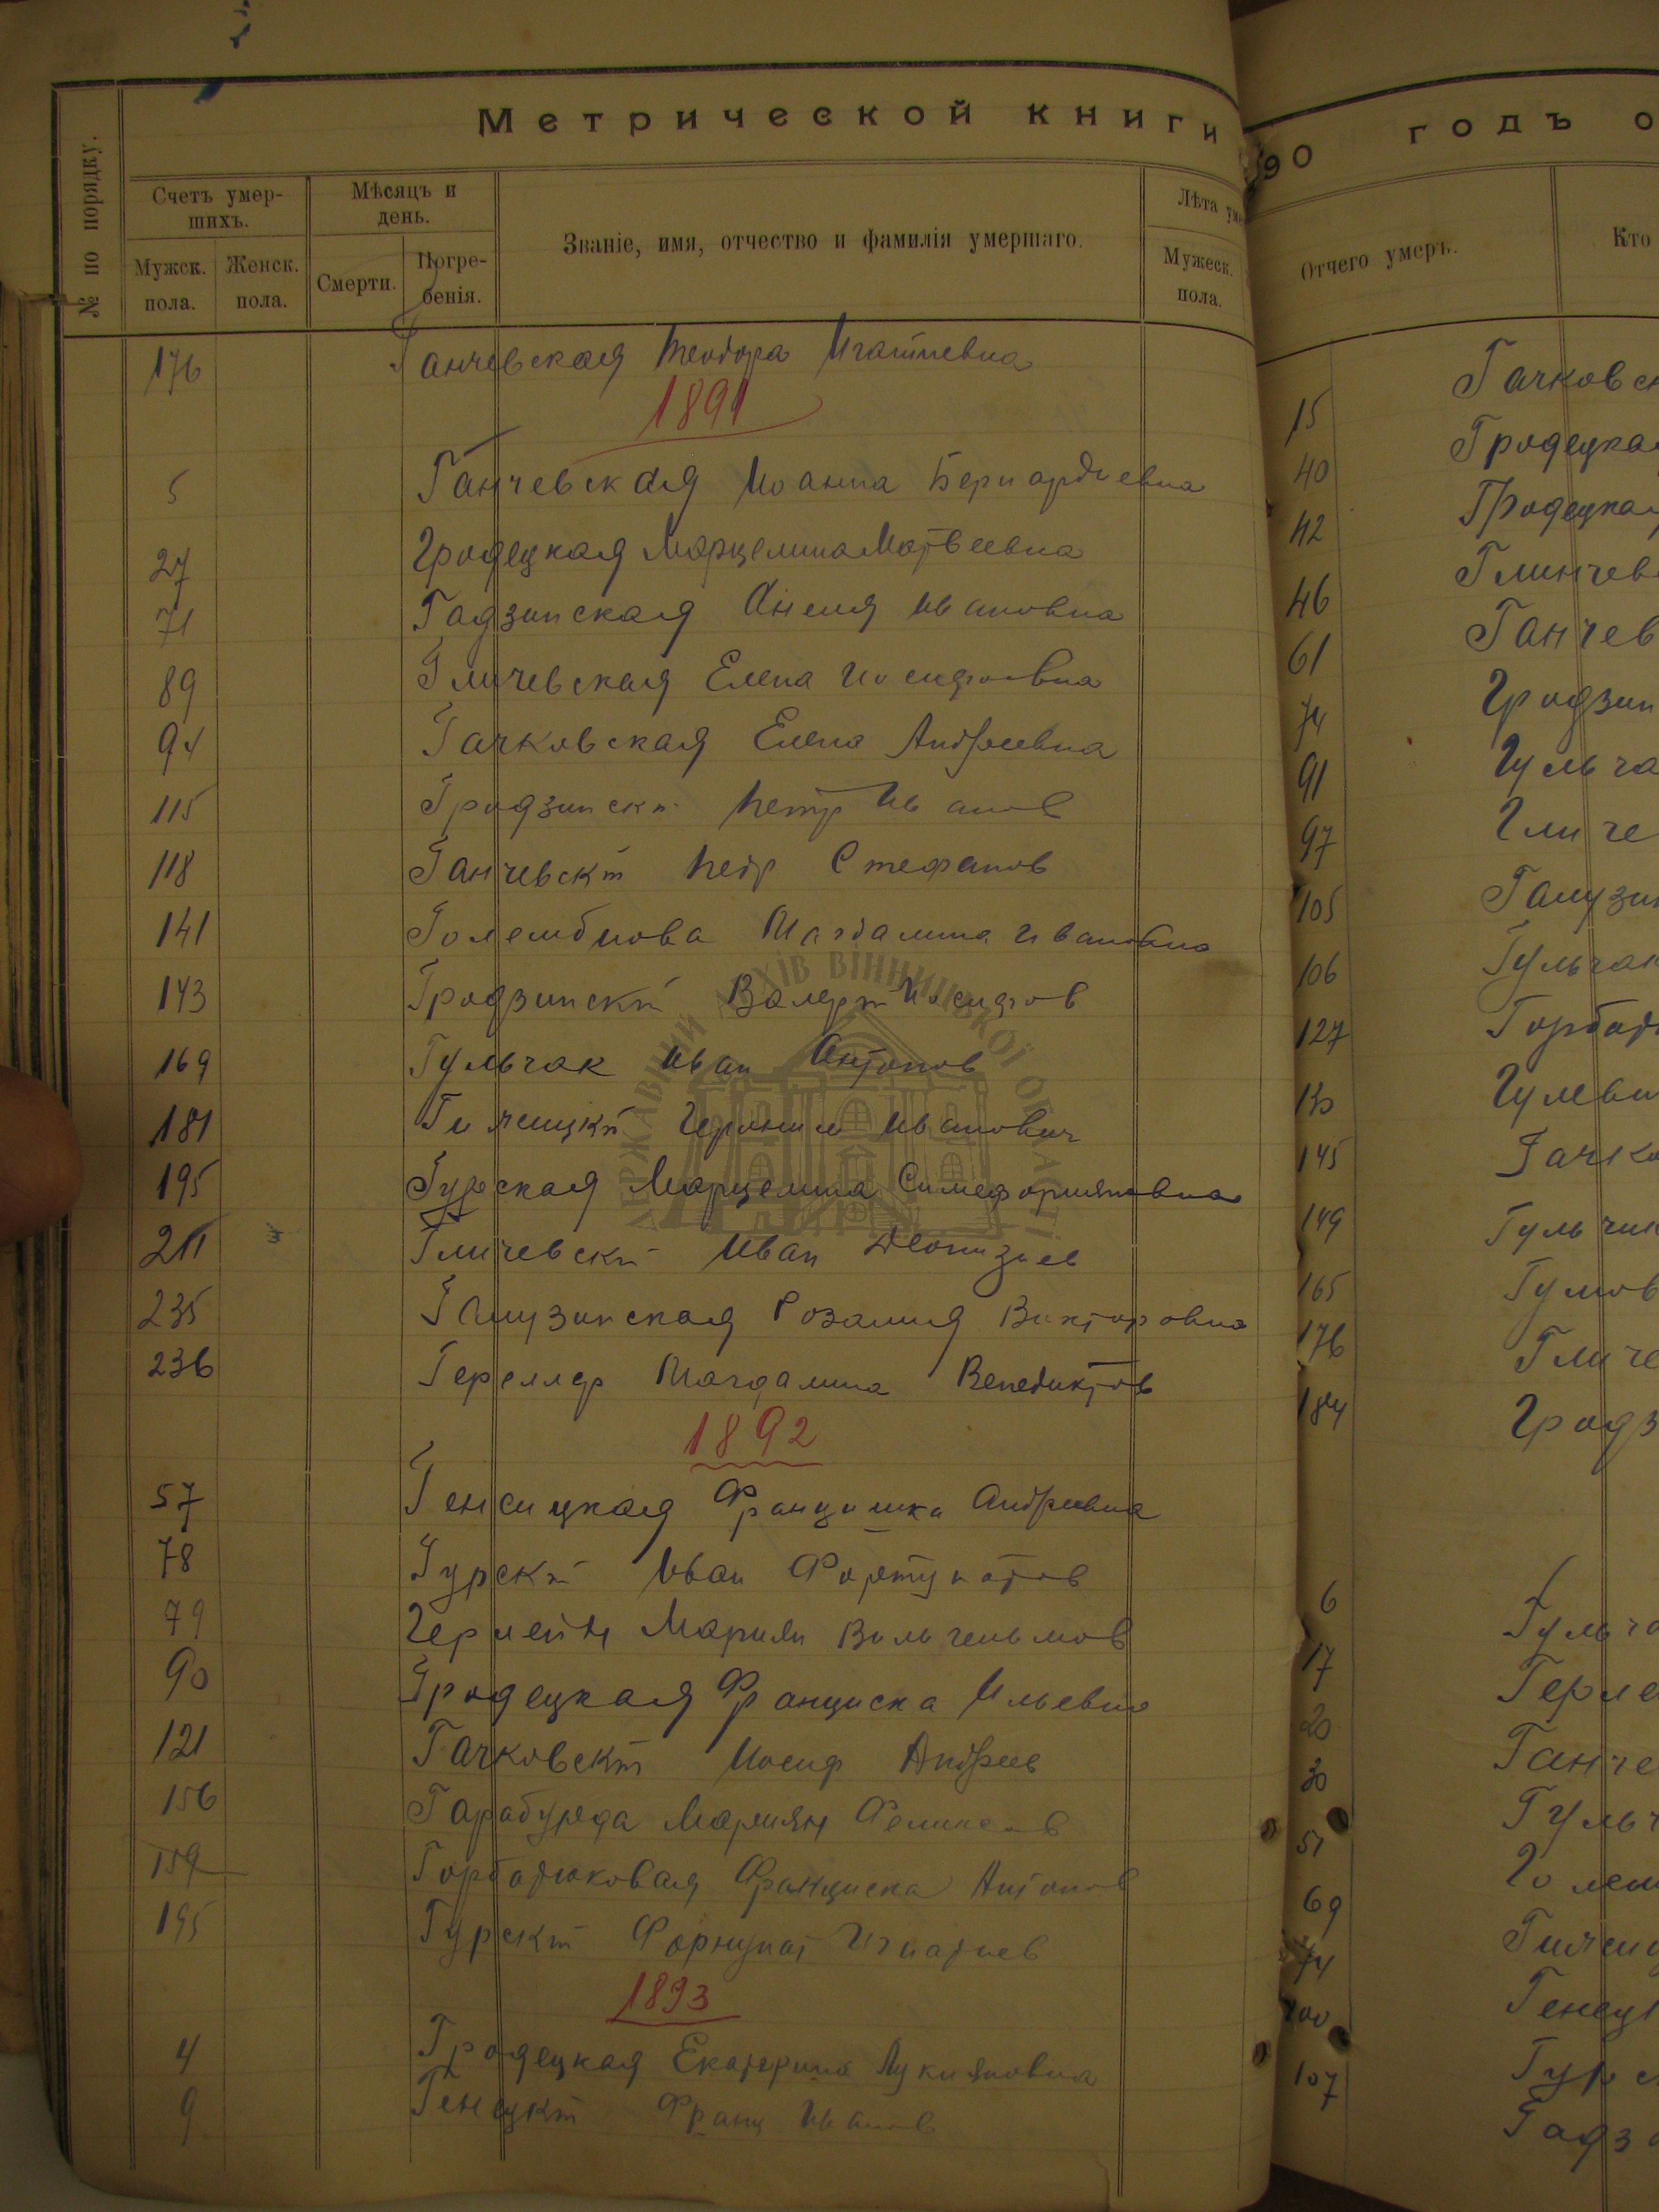 Метрической книги
№ по порядку.
Счетъ умер-
шихъ.
Мужск.
пола.
Женск.
пола.
Мѣсяцъ и
день.
Смерти.
Погре-
бенія.
Званіе, имя, отчество и фамилія умершаго.
Лѣта
Мужеск.
пола.
176 Ганчевская Теодора Игатиевна
1891
5 Ганчевская Иоанна Бернардиевна
27 Гродецкая Марцелина Матвеевна
71 Гадзинская Анеля Ивановна
89 Гличевская Елена Иосифовна
94 Гачковская Елена Андреевна
115 Гродзинскй Петр Иванов
118 Ганчевскй Петр Стефанов
141 Голембиова Магдалина Ивановна
143 Гродзинскй Иосифов
169 Гульчак Иван Антонов
181 Иванович
195 Гурская Марцелина
211 Гличевскй Иван Дионизиев
235 Галузинская Розалия Викторовна
236 Магдалина Венедиктов
1892
57 Генсицкая Андреевна
78 Гурскй Иван Фортунатов
79 Герлейн Мариян Вильгельмов
90 Гродецкая Франциска Ильевна
121 Гачковскй Иосиф Андреев
156 Гарабурда Мариян Феликсов
159 Горбатюковая Франциска Антонов
195 Гурскй Фортунат Игнатиев
1893
4 Гродецкая Екатерина Лукияновна
9 Генецкй Франц Иванов
90 годъ о
Отчего умеръ.
Кто
15 Гачковск
40 Гродецкая
42 Гродецкая
46 Глинчев
61 Ганчев
74 Гродзин
91 Гульча
97 Гличе
105 Галузин
106 Гульчак
127 Горбат
130 Гулеви
145 Гачко
149 Гульчик
165 Гумов
176 Гличе
184 Гродз
6 Гульча
17 Герле
20 Ганче
30 Гульч
51 Голем
69
74 Генец
100 Гурс
107 Гадз